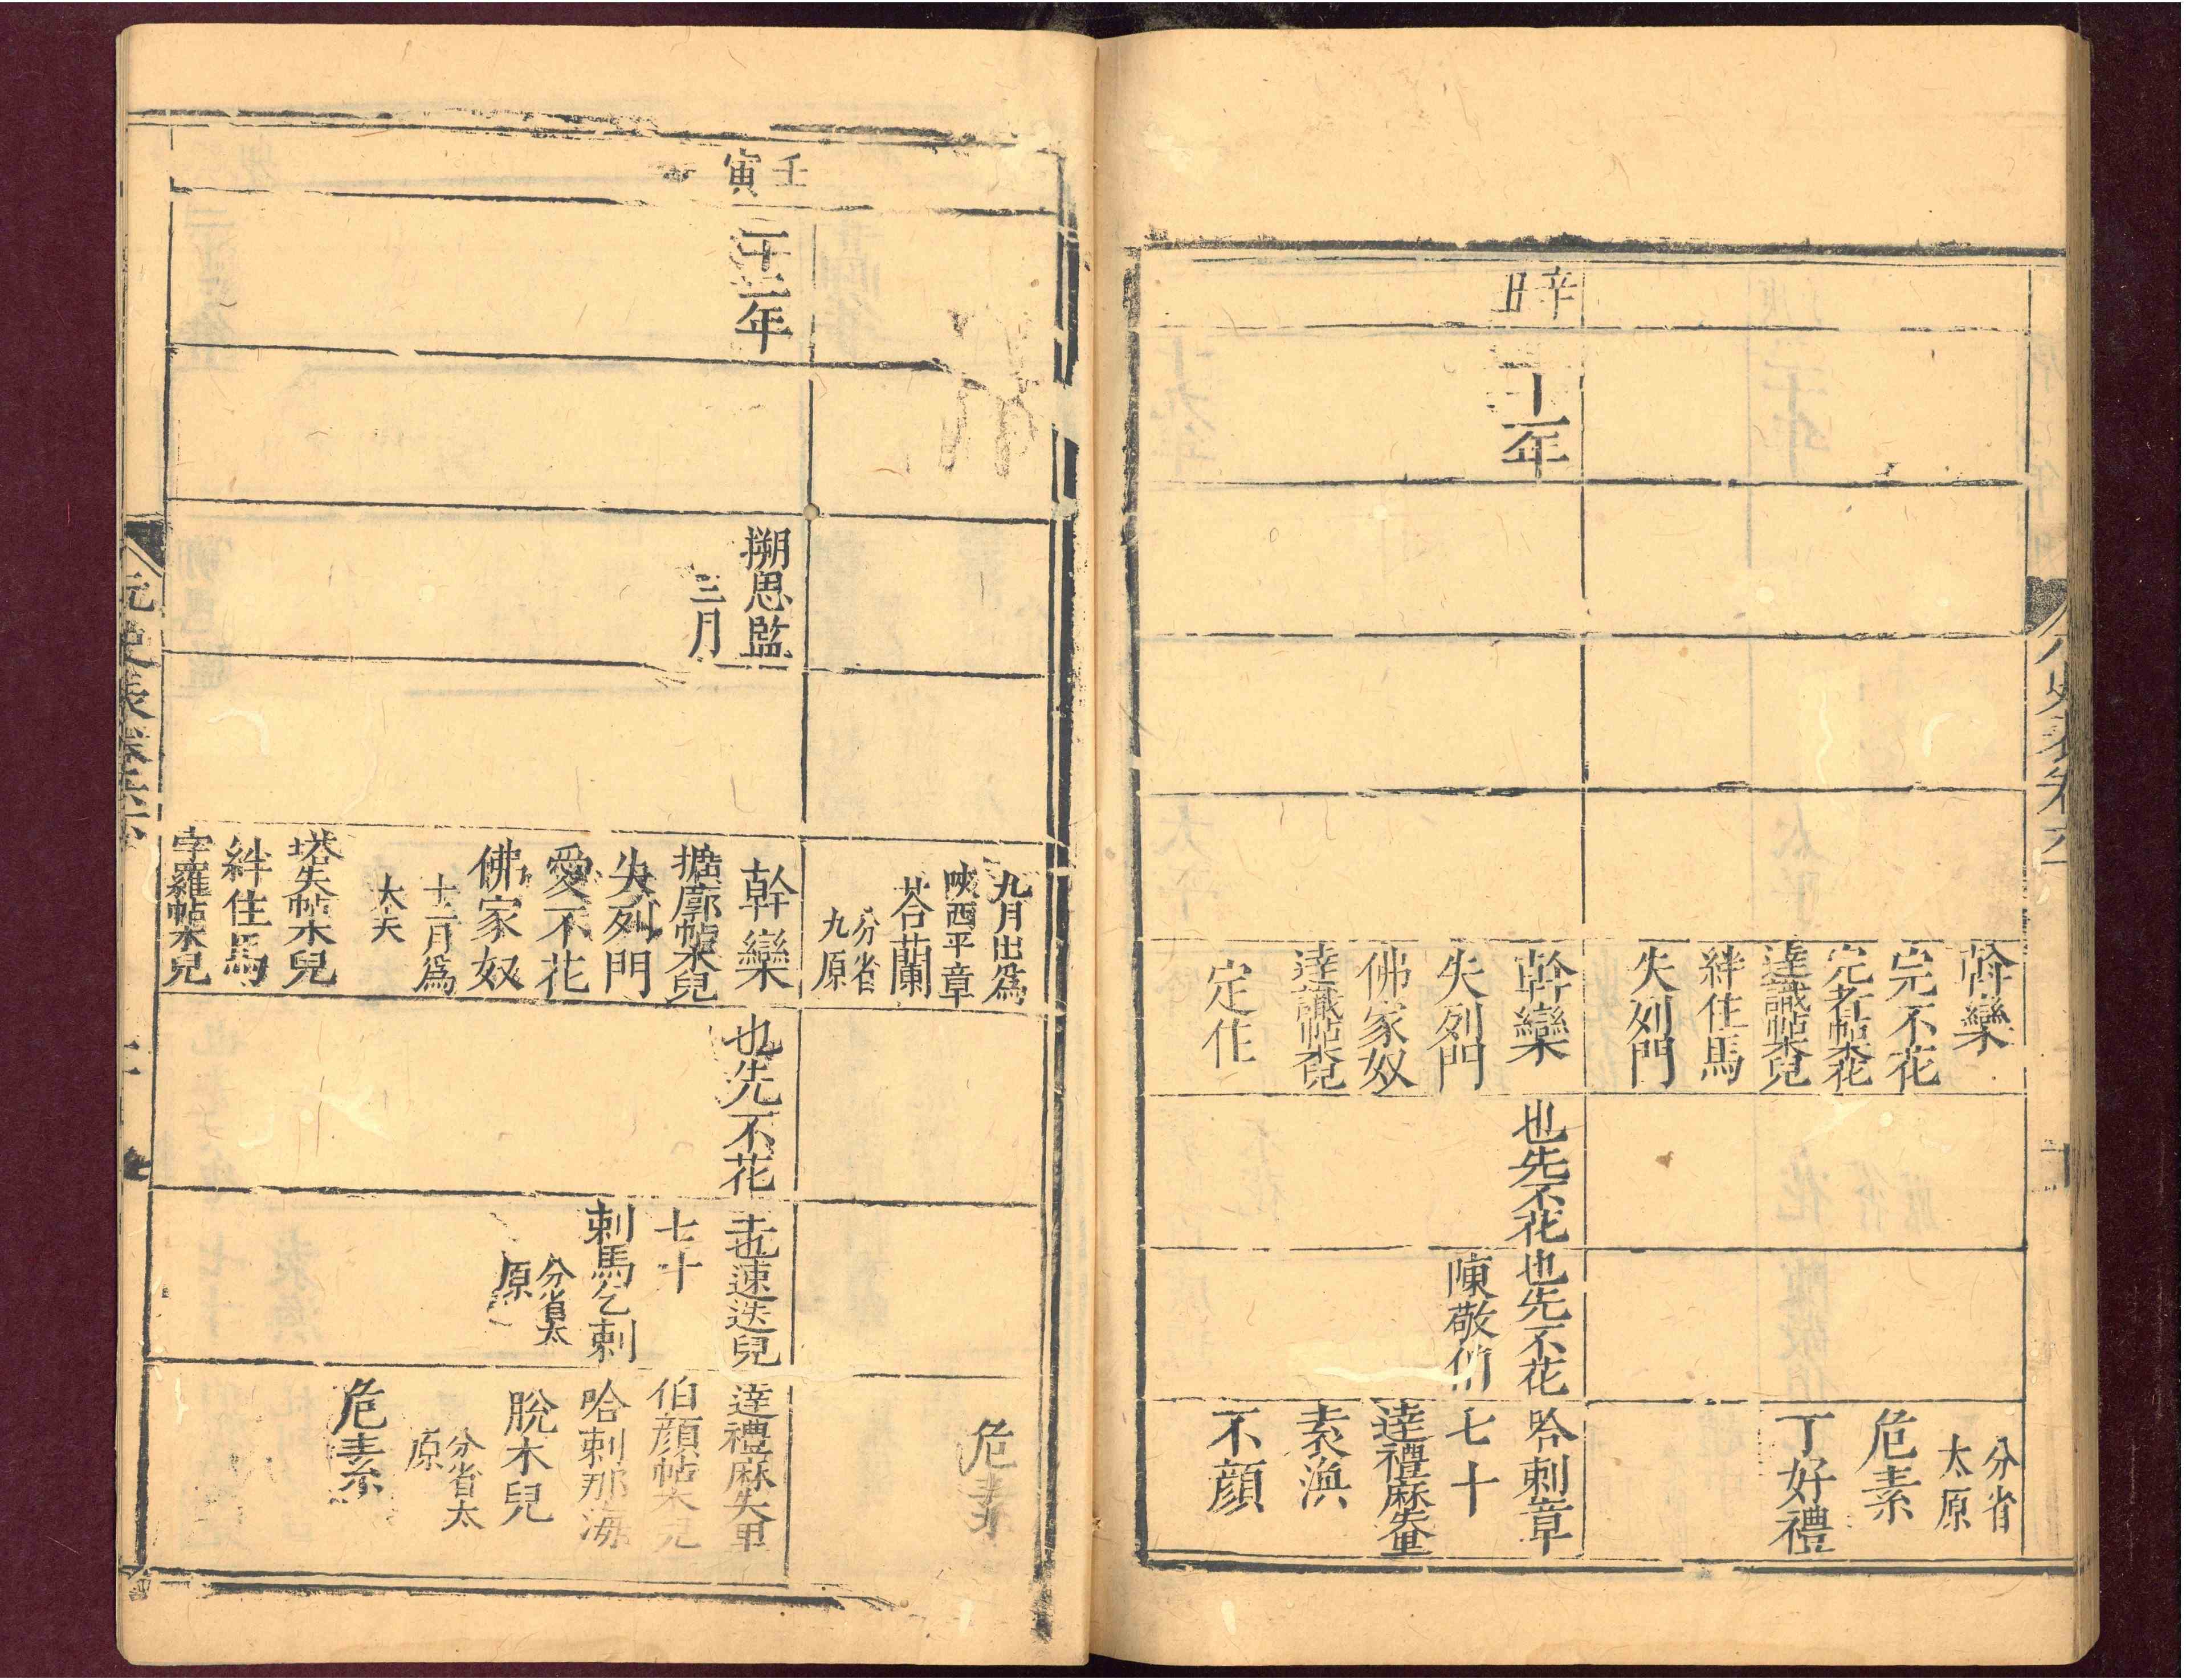 斡欒
完不花
完者帖木花
達識帖木兒
絆住馬
失列門
分省
太原
危素
丁好禮
辛丑
二十一年
斡欒
失列門
佛家奴
達識帖木兒
定住
也先不花
也先不花
陳敬伯
哈剌章
七十
達禮麻失里
袁渙
不顏
九月出爲
陝西平章
荅蘭
分省
九原
危素
壬寅
二十二年
搠思監
三月
斡欒
擴廓帖木兒
失列門
愛不花
佛家奴
十二月爲
大夫
塔失帖木兒
絆住馬
孛羅帖木兒
也先不花
也速迭兒
七十
剌馬乞剌
分省太
原
達禮麻失里
伯顏帖木兒
哈剌那海
脫木兒
分省太
原
危素
元史表卷六下